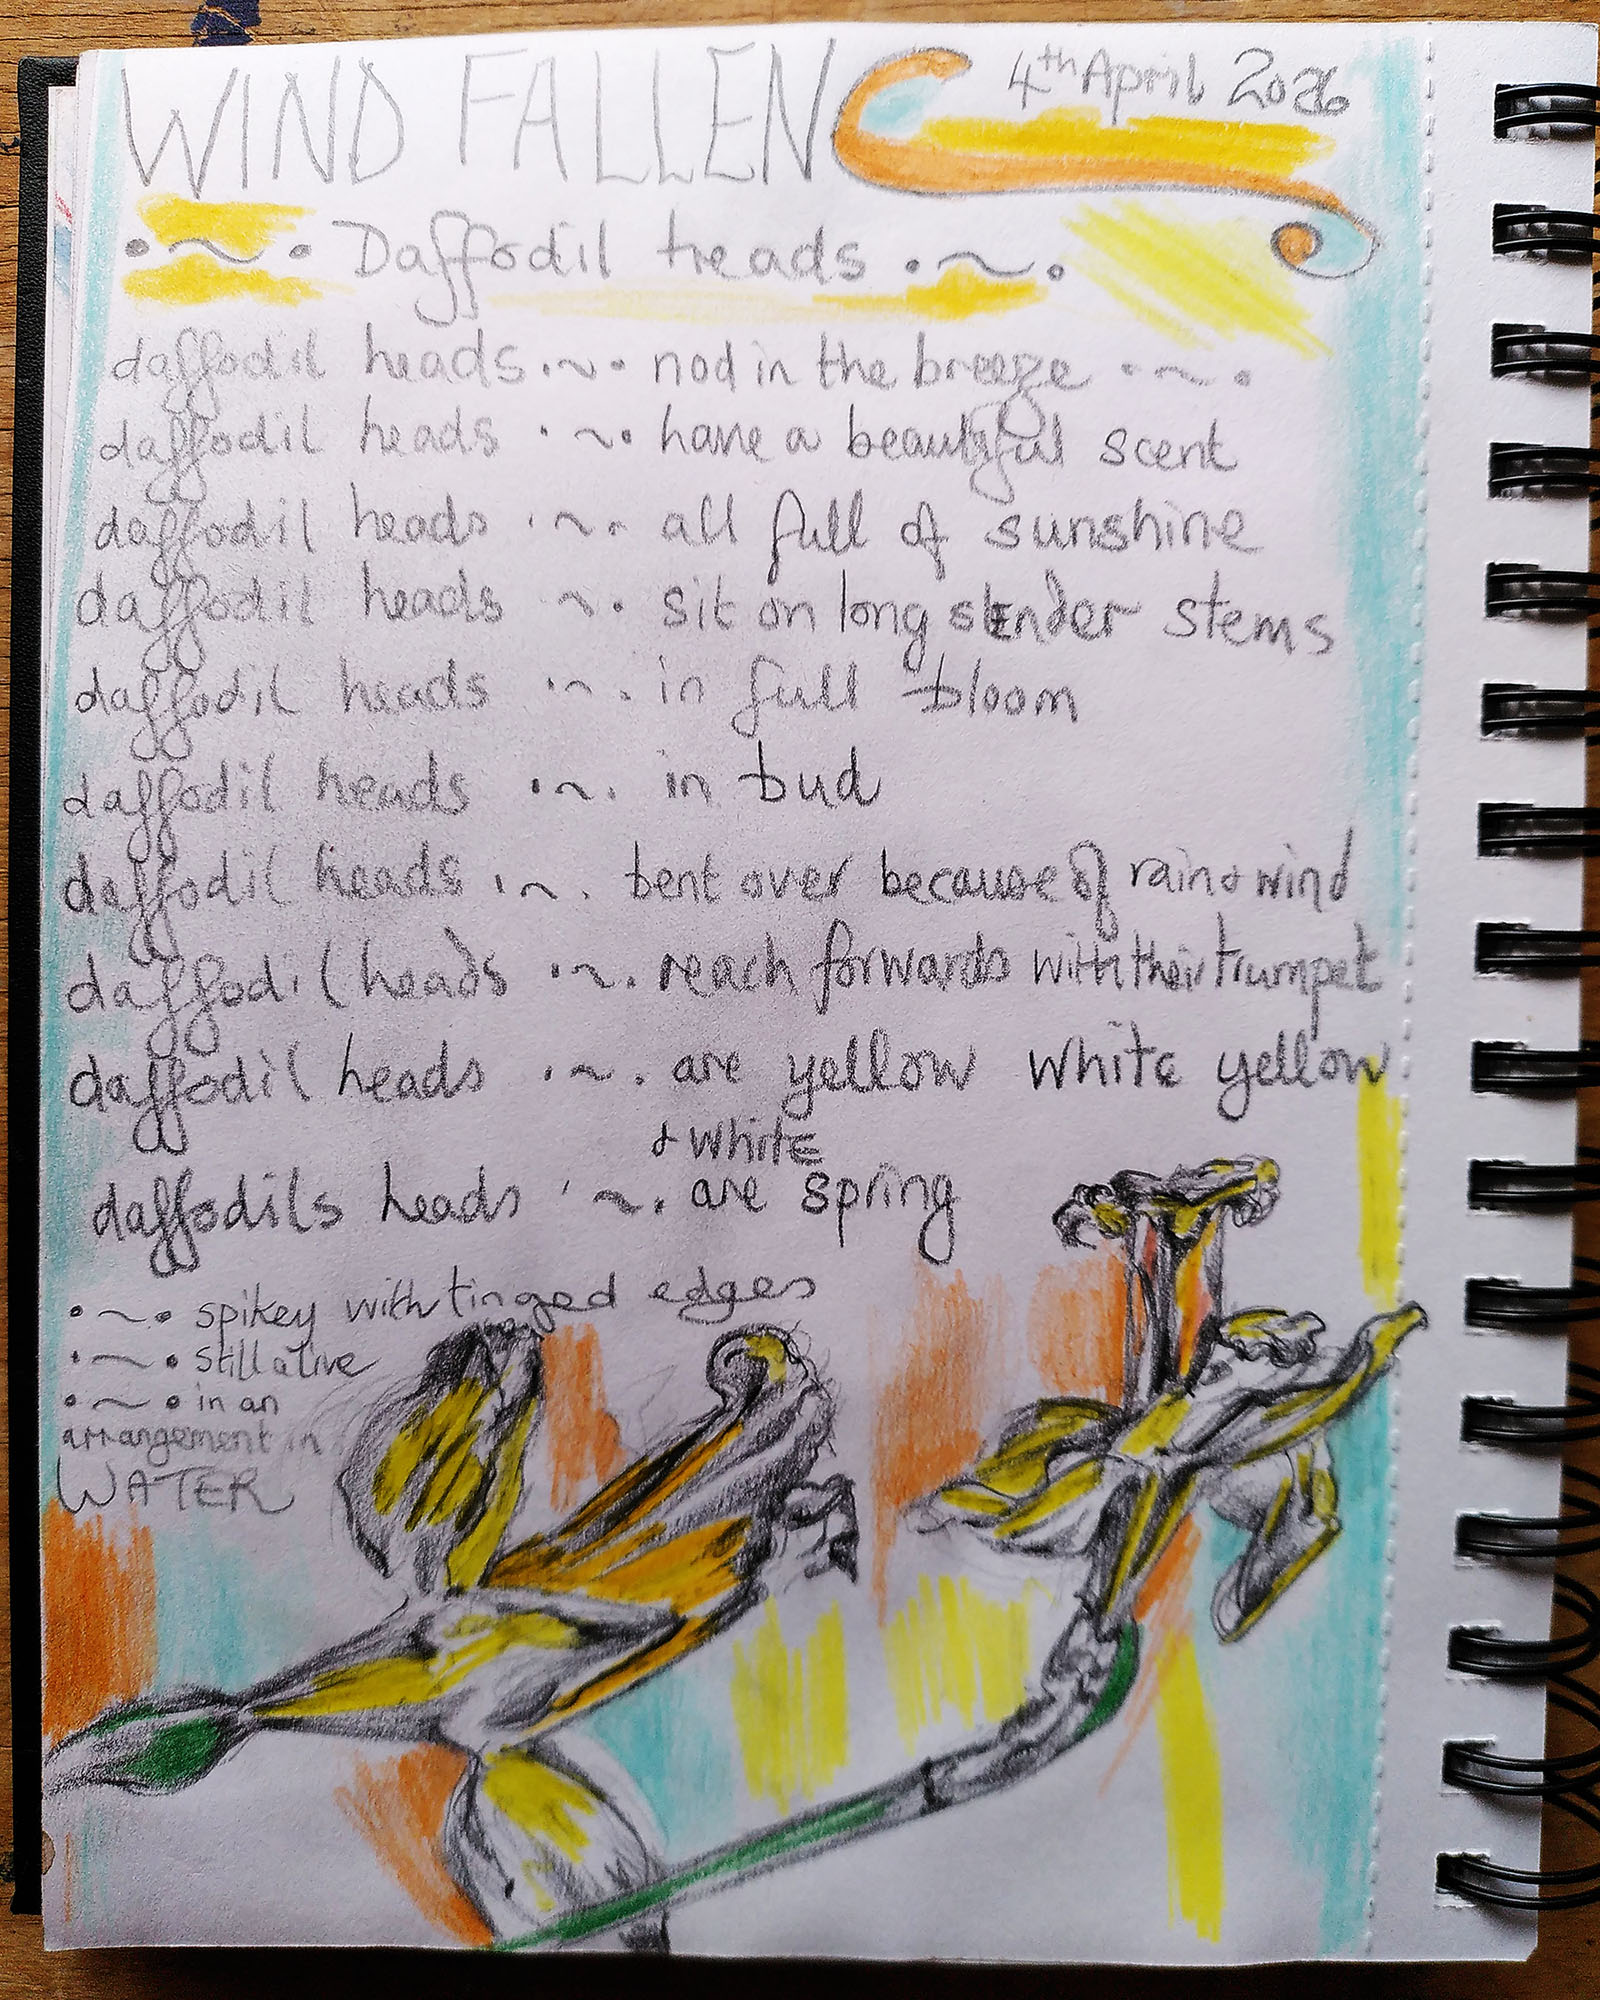 WIND FALLEN 4th April 2026
•~• Daffodil heads •~•
daffodil heads •~• nod in the breeze •~•
daffodil heads •~• have a beautiful scent
daffodil heads •~• all full of sunshine
daffodil heads ~• sit on long slender stems
daffodil heads •~• in full bloom
daffodil heads •~• in bud
daffodil heads •~• bent over because of rain & wind
daffodil heads •~• reach forwards with their trumpet
daffodil heads •~• are yellow white yellow
& white
daffodils heads •~• are spring
•~• spikey with tinged edges
•~• still alive
•~• in an
arrangement in
WATER